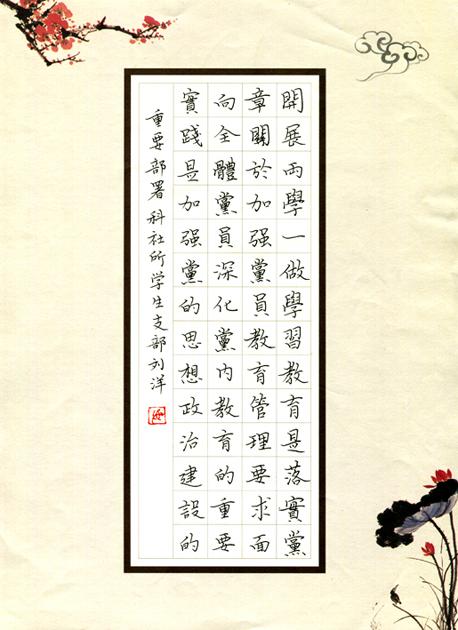 開展两學一做學習教育是落實黨
章關於加强黨員教育管理要求面
向全體黨員深化黨内教育的重要
實踐是加强黨的思想政治建設的
重要部署科社所学生支部刘洋